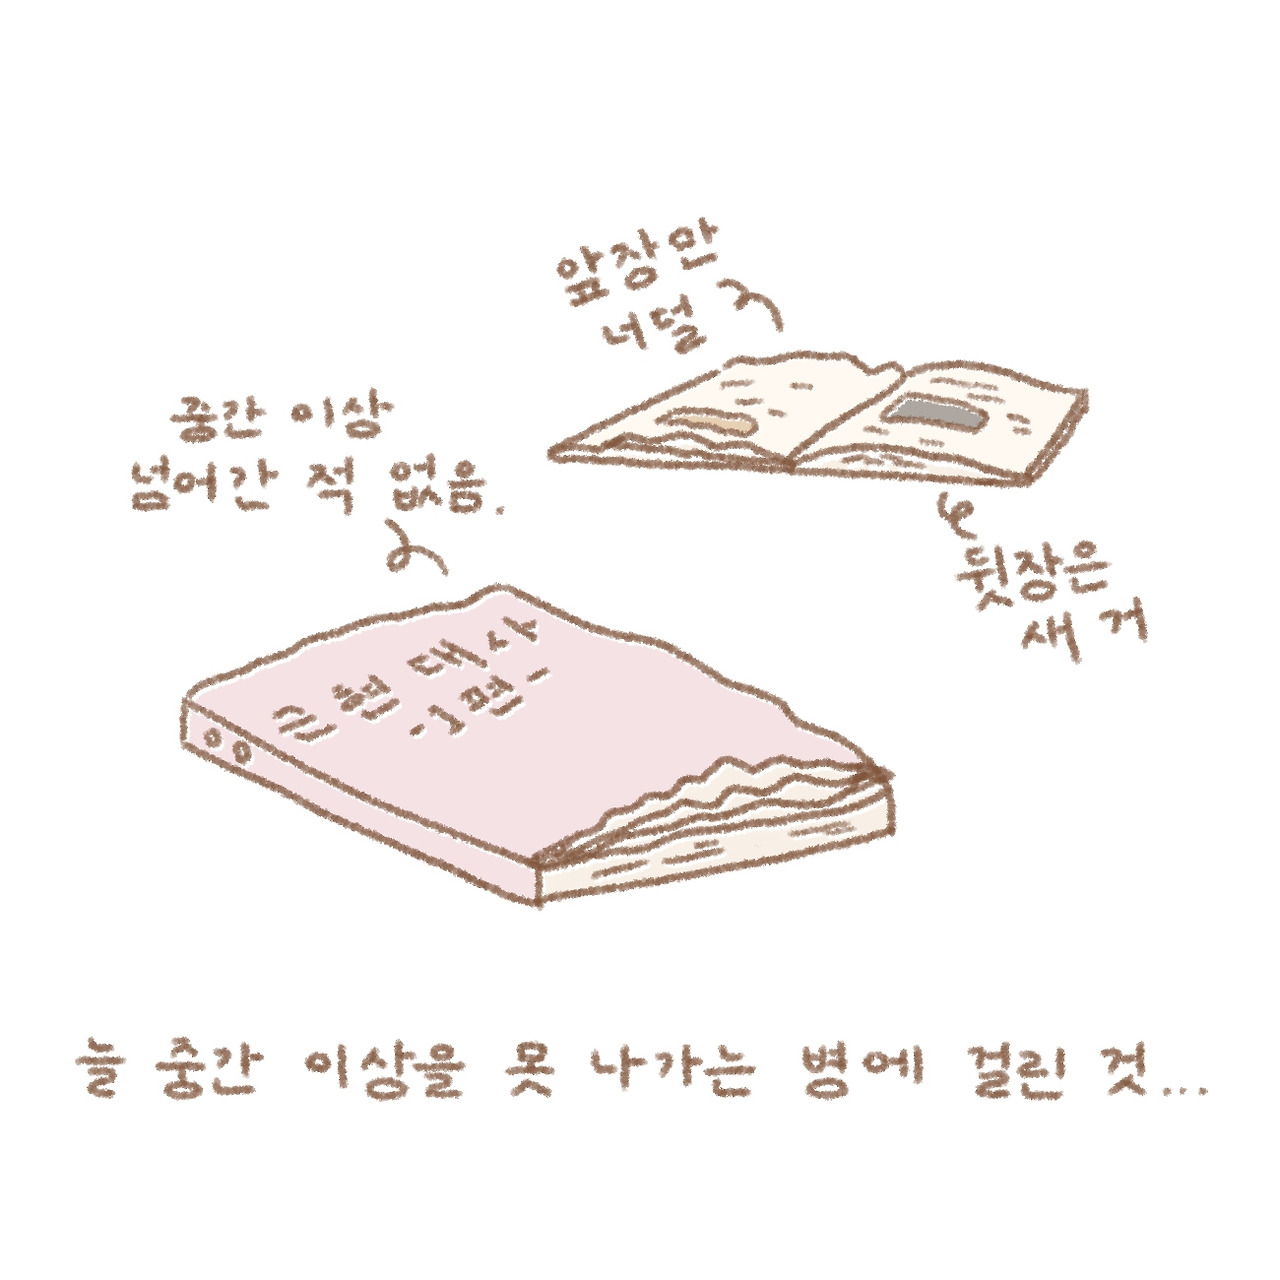 앞장만
너덜
중간 이상
넘어간 적 없음.
뒷장은
새 거
근현대사
-1편-
늘 중간 이상을 못 나가는 병에 걸린 것...